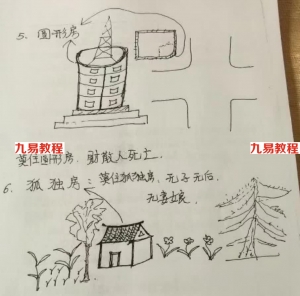 5、圆形房
九易教程
九易教程
莫住圆形房，财散人死亡．
6、孤独房：莫住孤独房，无子无后，
无妻娘．